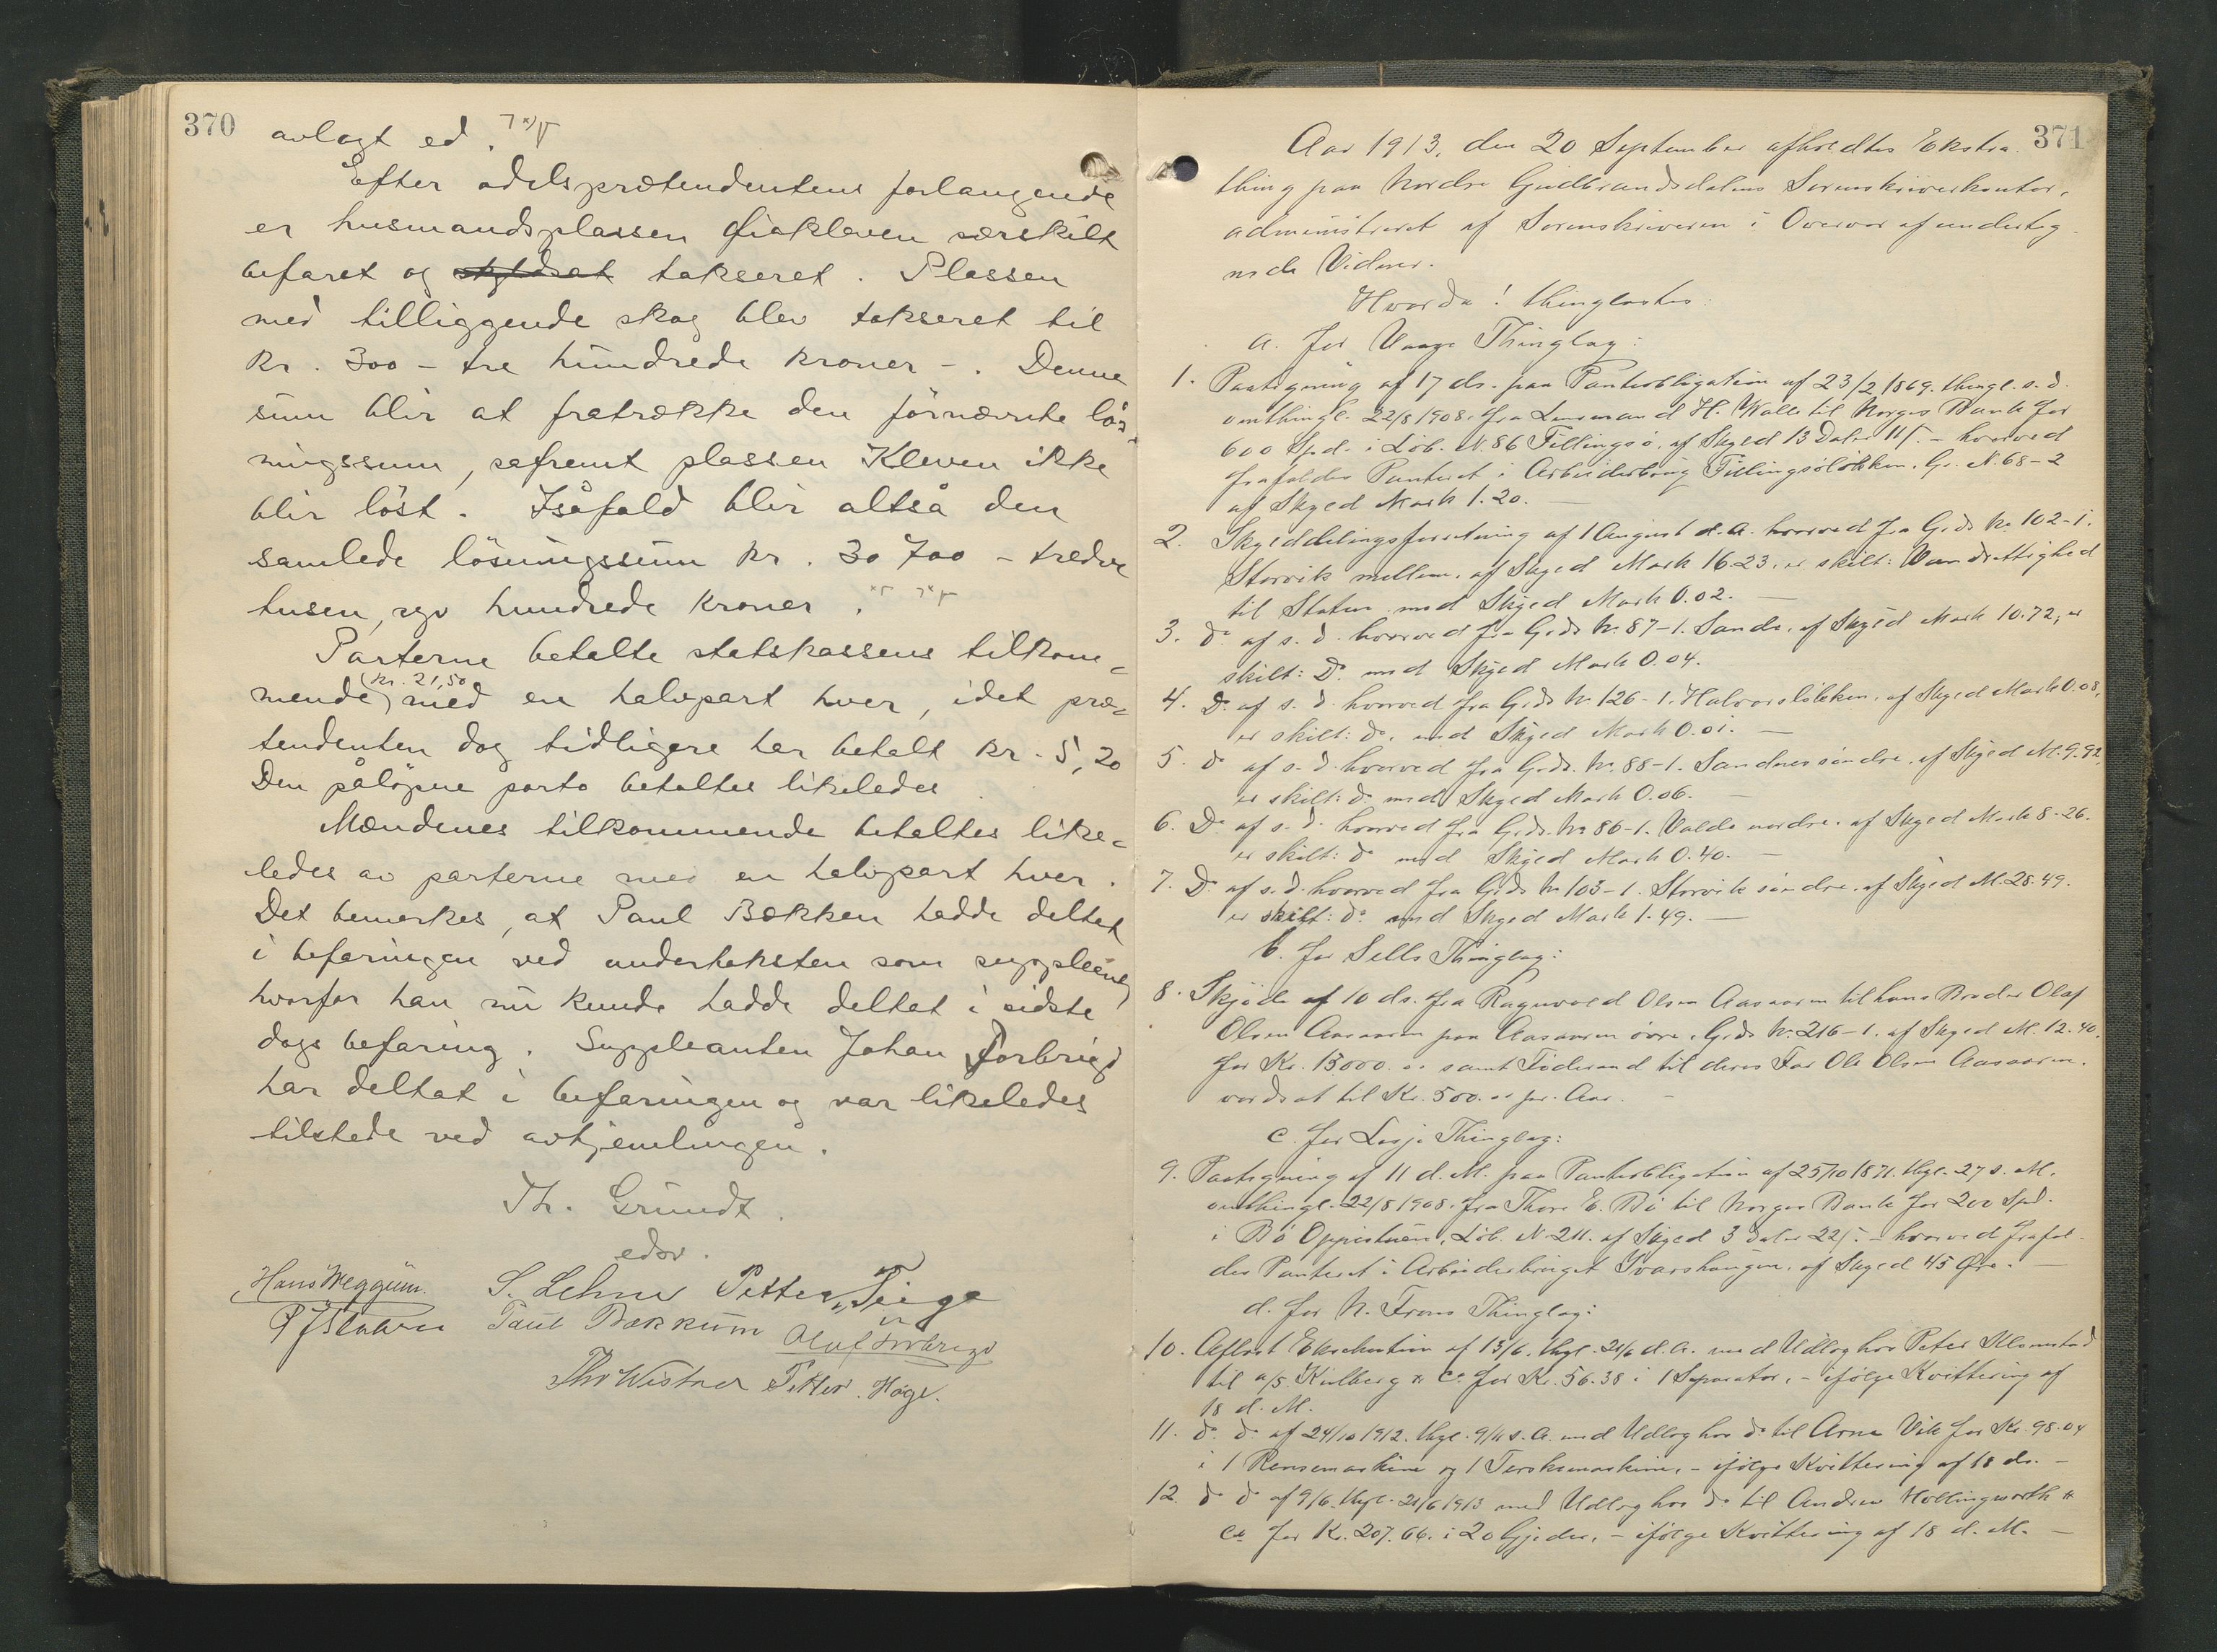 370
avlagt ed.
Efter odelsprætendentens forlangende
er husmandsplassen Giakleven særskilt
befaret og takseret. Plassen
med tilliggende skog blev takseret til
kr. 300 - tre hundrede kroner -. Denne
sum blir at fratrække den førnævnte løs-
ningssum, såfremt plassen Kleven ikke
blir løst. Isåfald blir altså den
samlede løsningssum kr. 30 700 - tredve
tusen, syv hundrede kroner.
Parterne betalte statskassens tilkom-
mende (kr. 21,50) med en halvpart hver, idet præ-
tendenten dog tidligere har betalt kr. 5,20
Den påløpne porto betaltes likeledes.
Mændenes tilkommende betaltes like-
ledes av parterne med en halvpart hver.
Det bemerkes, at Paul Bækken hadde deltat
i befaringen ved undertaksten som suppleant,
hvorfor han nu kunde hadde deltat i sidste
dags befaring. Suppleanten Johan Forbrigd
har deltat i befaringen og var likeledes
tilstede ved avhjemlingen.
Th. Grundt.
edsv.
Hans Weggum. S. Lehne Petter Teige
Paul Bækkum Oluf Forbrigd
Thv Wistner Petter Høge.
371
Aar 1913, den 20 September afholdtes Ekstra-
thing paa Nordre Gudbrandsdalens Sorenskriverkontor,
administreret af Sorenskriveren i Overvær af underteg-
nede Vidner.
Hvorda! thinglæstes:
a. for Vaage Thinglag:
1. Paategning af 17 ds. paa Pantobligation af 23/2 1869. thingl. s. d.
omthingl. 22/8 1908. fra Lensmand H. Walle til Norges Bank for
600 Spd. i Løb. N. 86 Tillingsø. af Skyld 13 Daler 11/. - hvorved
frafaldes Panteret i Arbeiderbrug Tillingsøløkken, Gr. N. 68-2
af Skyld Mark 1.20.
2. Skylddelingsforretning af 1 August d. A. hvorved fra Grds No 102-1.
Storvik mellem, af Skyld Mark 16.23, er skilt: Vandrettighed
til Staten med Skyld Mark 0.02. -
3. Do af s. d. hvorved fra Grds No 87-1. Sande, af Skyld Mark 10.72, er
skilt: Do med Skyld Mark 0.04.
4. Do af s. d. hvorved fra Grds No 126-1. Halvorsløkken, af Skyld Mark 0.08,
er skilt: do. med Skyld Mark 0.01. -
5. do af s. d. hvorved fra Grds. No 88-1. Sandnes søndre, af Skyld M. 9.92,
er skilt: do med Skyld Mark 0.06. -
6. Do af s. d. hvorved fra Grds. No 86-1. Valde nordre, af Skyld Mark 8.26.
er skilt: do med Skyld Mark 0.40. -
7. Do af s. d. hvorved fra Grds No 103-1. Storvik søndre, af Skyld M. 28.49.
er skilt: do med Skyld Mark 1.49. -
b. for Sells Thinglag:
8. Skjøde af 10 ds. fra Ragnvald Olsen Aasaaren til hans Broder Olaf
Olsen Aasaaren paa Aasaaren øvre, Grds No. 216-1. af Skyld M. 12.40,
for Kr. 13000.00 samt Føderaad til deres Far Ole Olsen Aasaaren.
værdsat til Kr. 500.00 pr. Aar. -
c. for Lesje Thinglag:
9. Paategning af 11 d. M. paa Pantobligation af 25/10 1871. thgl. 27 s. M.
omthingl. 22/8 1908. fra Thore E. Bø til Norges Bank for 200 Spd.
i Bø Oppistuen, Løb. N. 211. af Skyld 3 Daler 22/. - hvorved frafal-
des Panteret i Arbeiderbruget Ivarshaugen, af Skyld 45 Øre. -
d. for N. Frons Thinglag:
10. Aflyst Eksekution af 13/6. thgl. 21/6 d. A. med Udlæg hos Peter Klomstad
til A/S. Kiilberg & Co. for Kr. 56.38 i 1 Separator, - ifølge Kvittering af
18 d. M.
11. do. do. af 24/10 1912. thgl. 9/11 s. A. med Udlæg hos do til Arne Vik for Kr. 98.04
i 1 Rensemaskine og 1 Tærskemaskine, - ifølge Kvittering af 18 ds. -
12. do do af 9/6. thgl. 21/6 1913 med Udlæg hos do til Andrew Hollingworth &
Co for Kr. 207.66. i 20 Gjeder, - ifølge Kvittering af 18 d. M. -